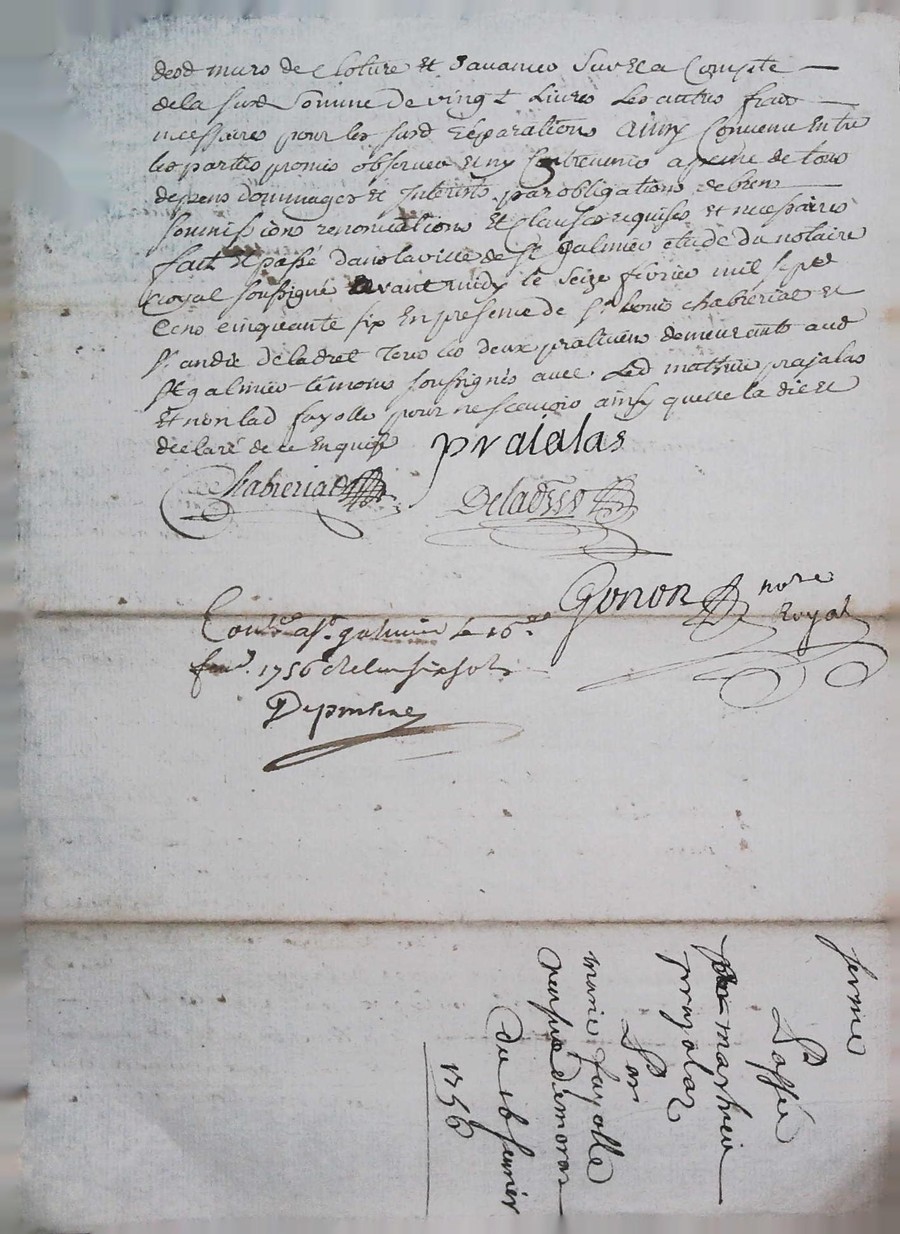 desd murs de cloture et davancer sur et a Compte
de la susd Somme de vingt Livres Les autres frais
necessaires pour les susd Reparations ainsy Convenu Entre
les parties promis observer et ny Contrevenir a peine de tous
depens dommages et Interets par obligations de biens
soumissions renonciations et clauses requises et necessaires
fait et passé dans la ville de St Galmier etude du notaire
royal soussigné avant midy le seize fevrier mil sept
Cens cinquante six En presence de Sr Chabreriat et
Sr andré Deladret tous les deux praticiens demeurants aud
St galmier temoins soussignés avec Led mathieu prajalas
et non lad fayolle pour ne scavoir ainsy quelle la dit et
declaré de ce Enquise
praialas
Chabreriat
Gonon nore
Royal
Contlé a St galmier le 16e
fevr. 1756 six sols
ferme
Passée
par mathieu
prajalas
Par
marie fayolle
veuve dimoran
du 16 fevrier
1756